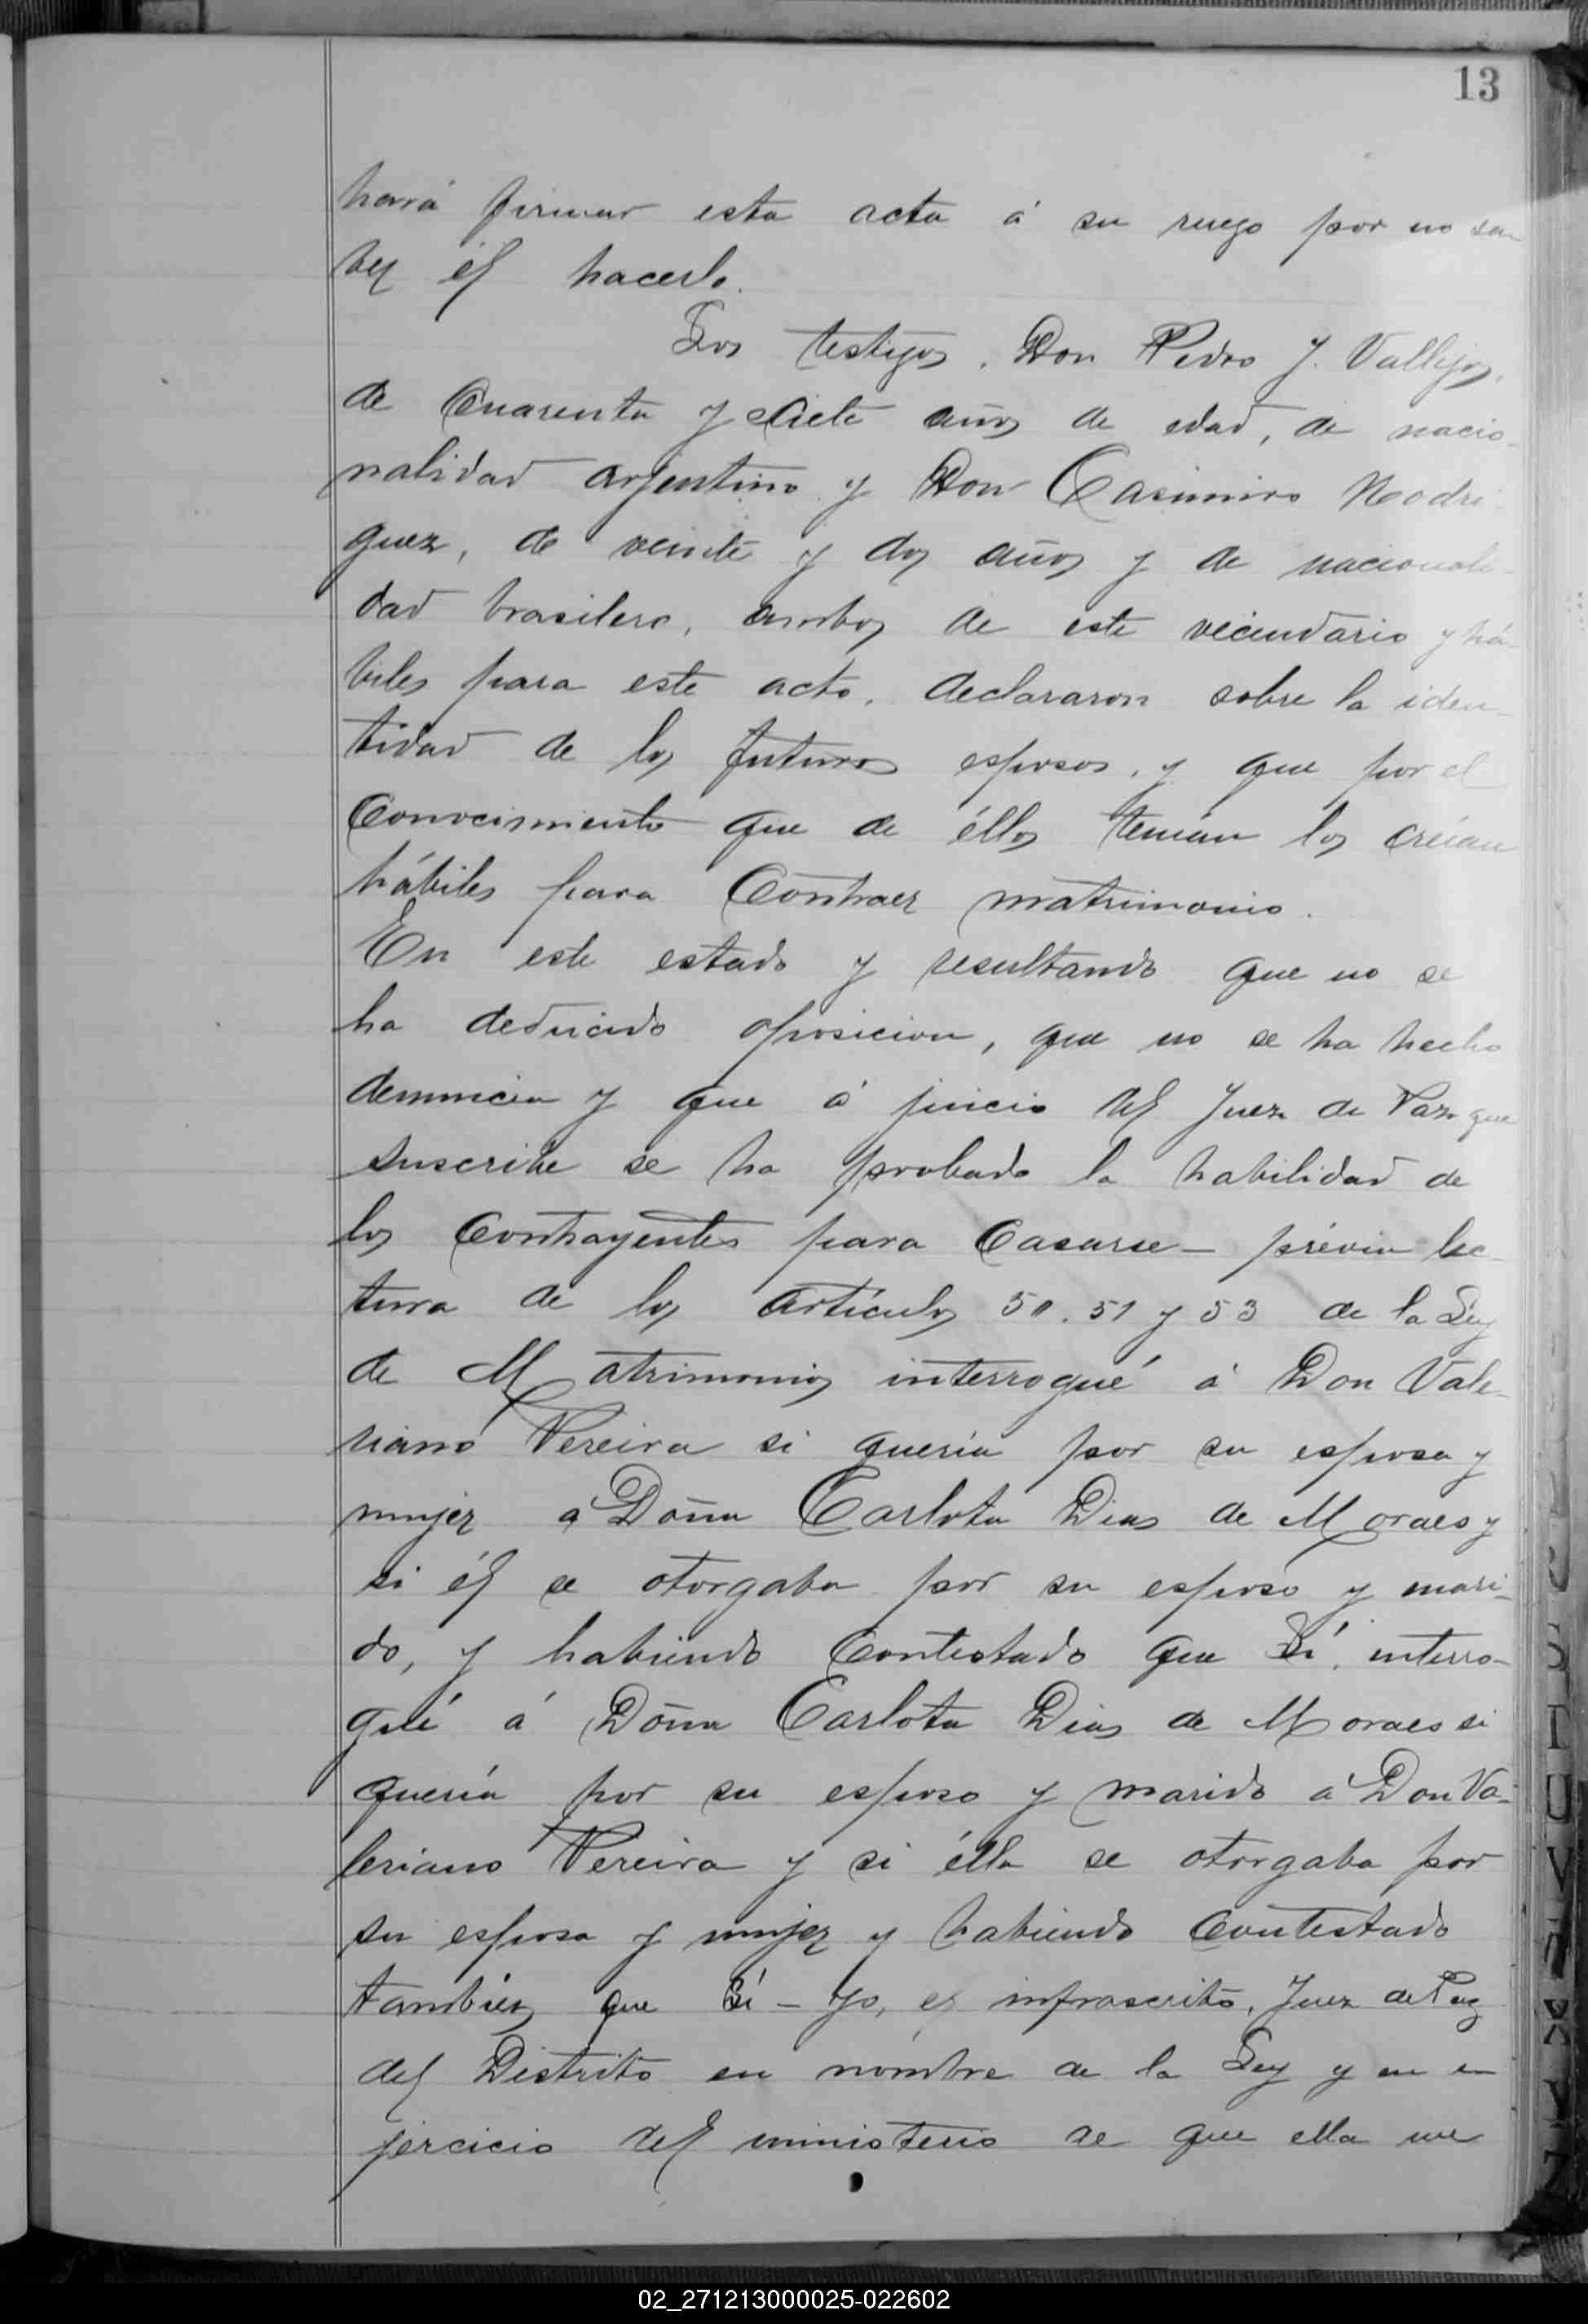 13
hará firmar esta acta á su ruego por no sa
ber él hacerlo.
Los testigos, Don Pedro J. Vallejos,
de Cuarenta y siete años de edad, de nacio-
nalidad argentino y Don Casimiro Rodri-
guez, de veinte y dos años y de nacionali-
dad brasilero, ambos de este vecindario y há-
biles para este acto, declararon sobre la iden-
tidad de los futuros esposos, y que por el
Conocimiento que de éllos tenían los creían
hábiles para Contraer matrimonio.
En este estado y resultando que no se
ha deducido oposicion, que no se ha hecho
denuncia y que á juicio del Juez de Paz que
suscribe se ha probado la habilidad de
los Contrayentes para Casarse – prévia lec-
tura de los artículos 50. 51 y 53 de la Ley
de Matrimonios interrogué á Don Vale-
riano Pereira si quería por su esposa y
mujer a Doña Carlota Dias de Moraes y
si él se otorgaba por su esposo y mari-
do, y habiendo Contestado que Sí, interro-
gué á Doña Carlota Dias de Moraes si
quería por su esposo y marido á Don Va-
leriano Pereira y si élla se otorgaba por
su esposa y mujer y habiendo Contestado
también que Sí – Yo, el infrascrito, Juez de Paz
del Distrito en nombre de la Ley y en e
jercicio del ministerio de que ella me
S
T
U
V
X
Y
Z
02_271213000025-022602